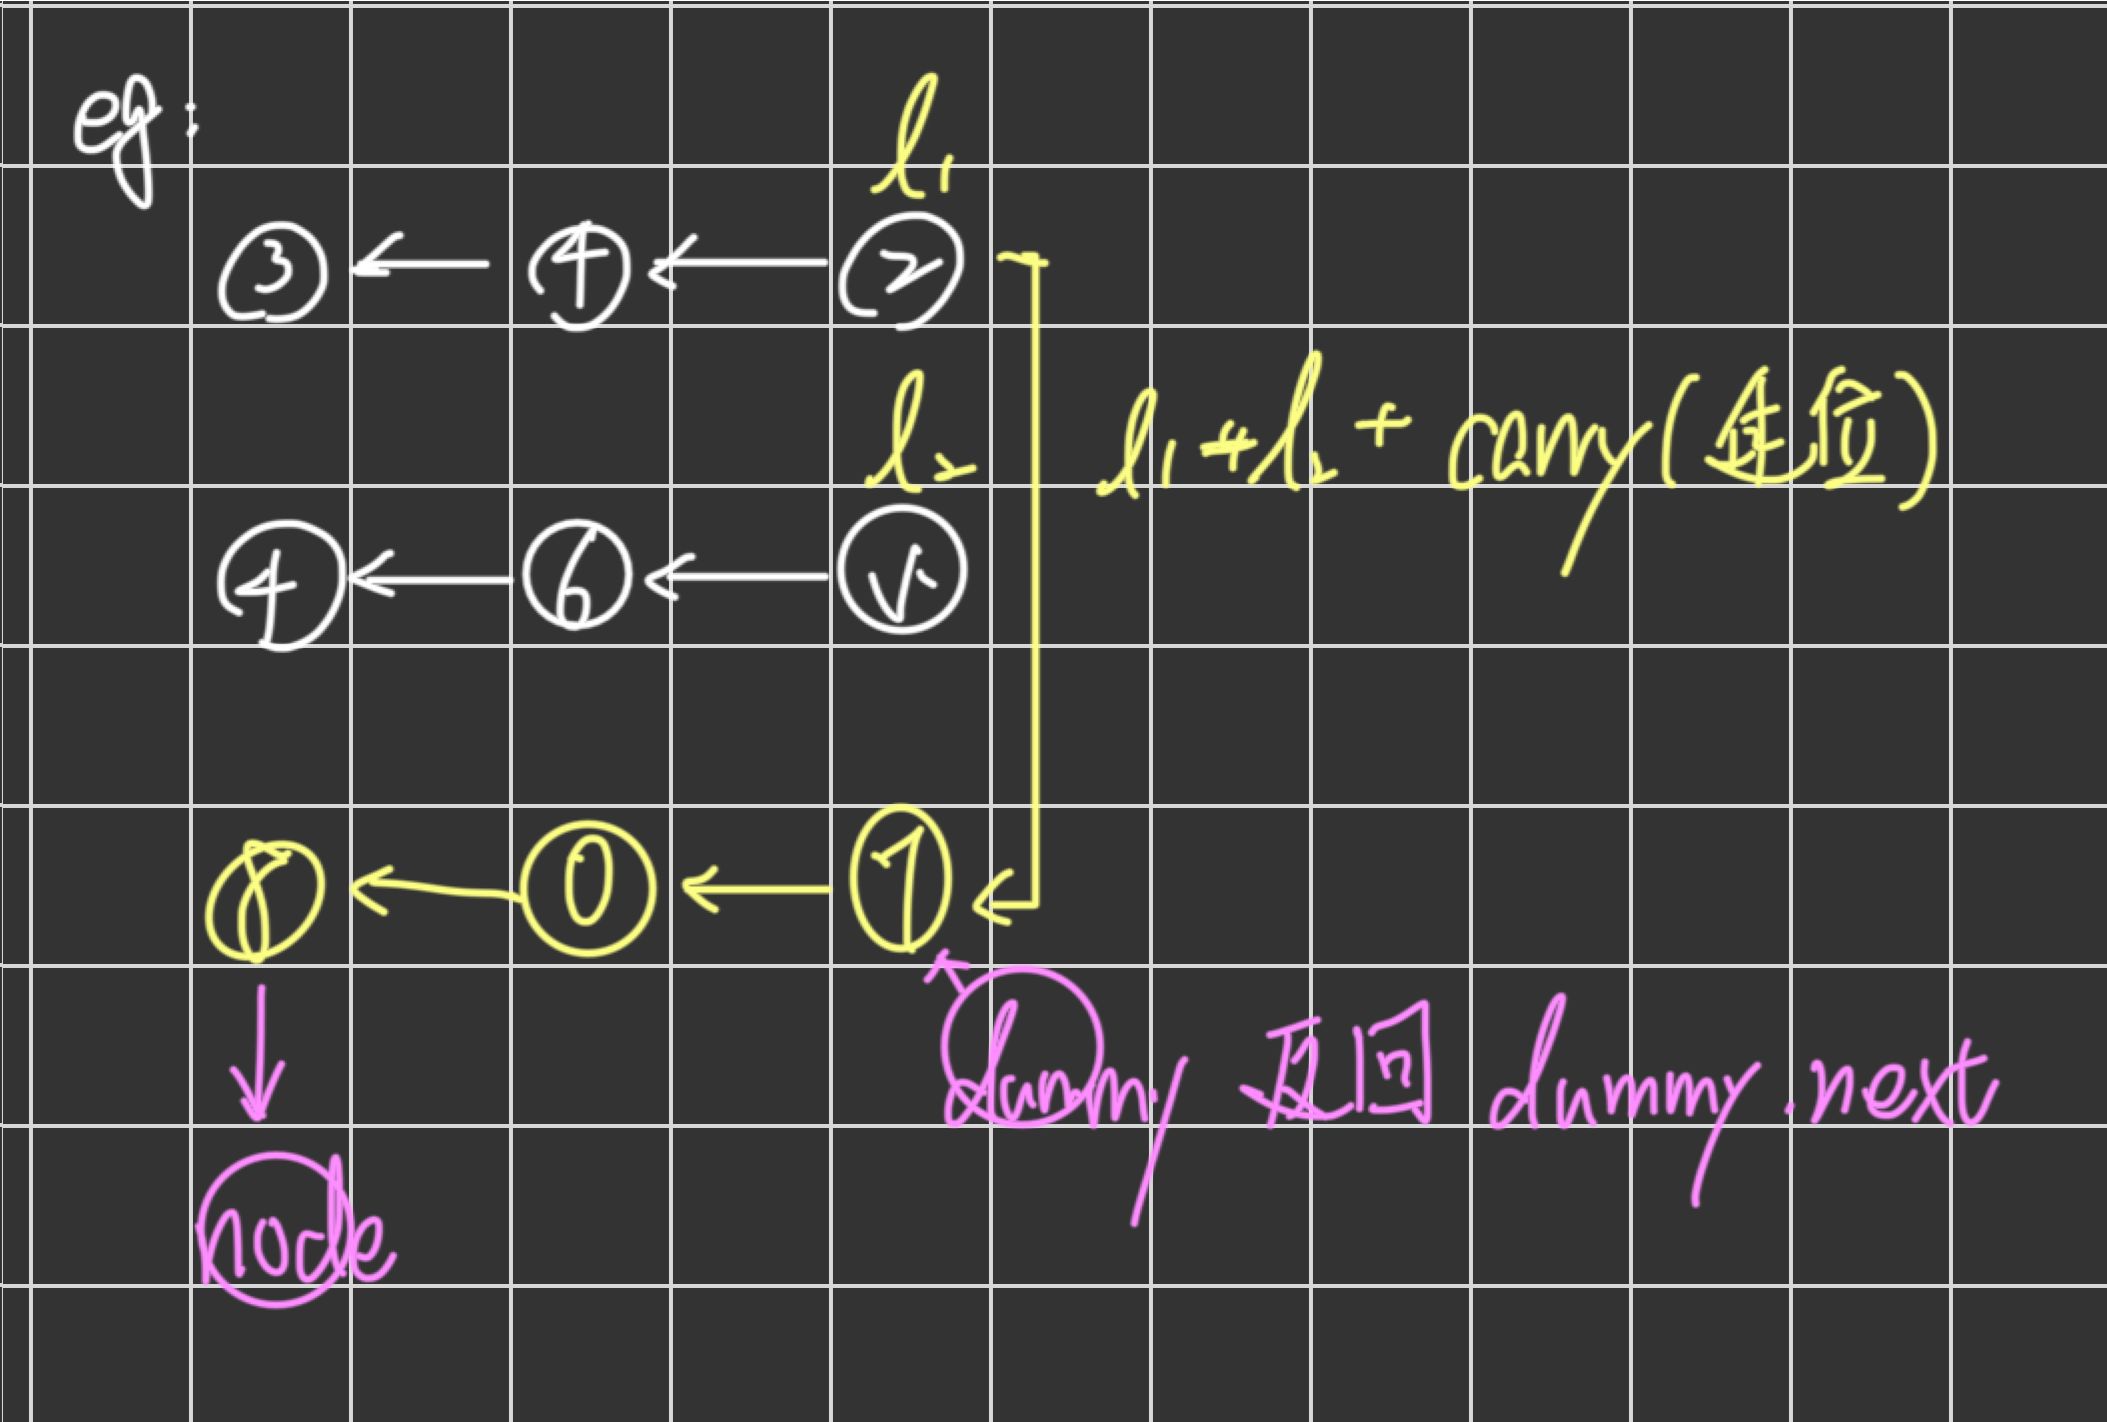 eg:
l1
3 ← 4 ← 2
l2
l1 + l2 + carry (進位)
4 ← 6 ←
8 ← 0 ← 7
dummy 返回 dummy.next
node